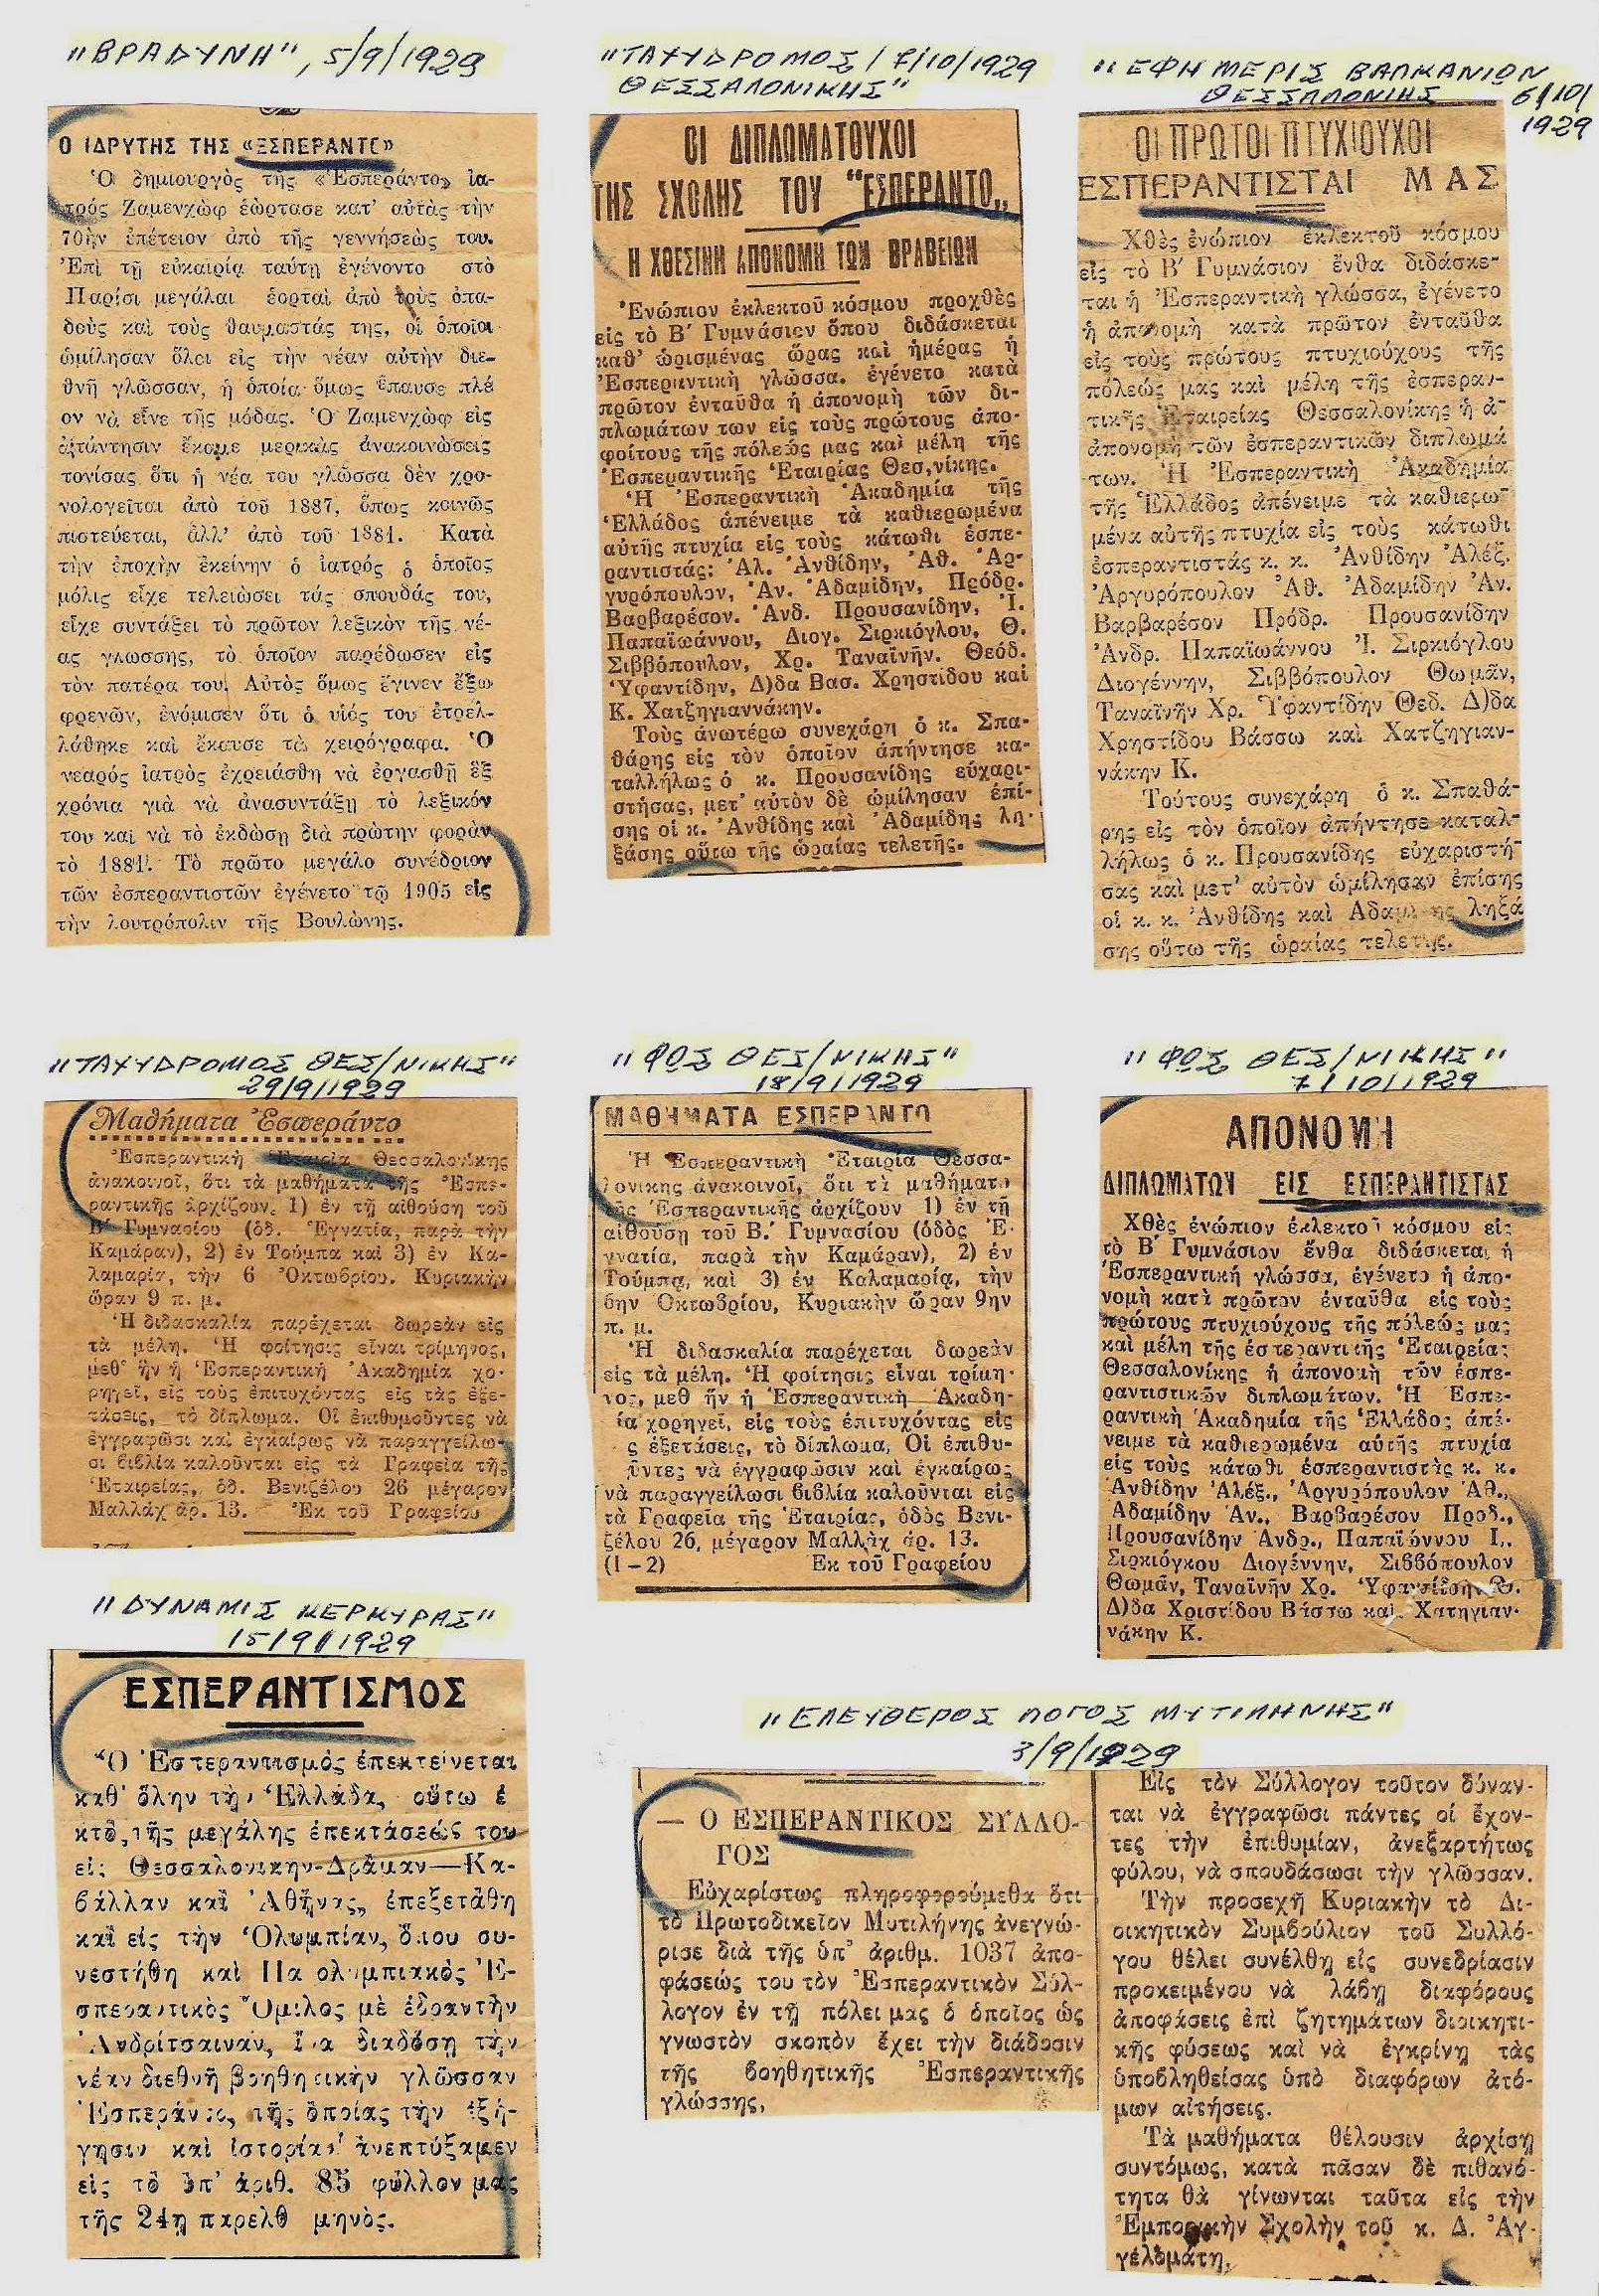 "ΒΡΑΔΥΝΗ", 5/9/1929
Ο ΙΔΡΥΤΗΣ ΤΗΣ «ΕΣΠΕΡΑΝΤΟ»
Ὁ δημιουργὸς τῆς «Ἐσπεράντο» ἰα-
τρός Ζαμενχὼφ ἑώρτασε κατ' αὐτὰς τὴν
70ὴν ἐπέτειον ἀπὸ τῆς γεννήσεώς του.
Ἐπὶ τῇ εὐκαιρίᾳ ταύτῃ ἐγένοντο στὸ
Παρίσι μεγάλαι ἑορταὶ ἀπὸ τοὺς ὀπα-
δοὺς καὶ τοὺς θαυμαστάς της, οἱ ὁποῖοι
ὡμίλησαν ὅλοι εἰς τὴν νέαν αὐτὴν διε-
θνῆ γλῶσσαν, ἡ ὁποία ὅμως ἔπαυσε πλέ
ον νὰ εἶνε τῆς μόδας. Ὁ Ζαμενχὼφ εἰς
ἀπάντησιν ἔκαμε μερικὰς ἀνακοινώσεις
τονίσας ὅτι ἡ νέα του γλῶσσα δὲν χρο-
νολογεῖται ἀπὸ τοῦ 1887, ὅπως κοινῶς
πιστεύεται, ἀλλ' ἀπὸ τοῦ 1881. Κατὰ
τὴν ἐποχὴν ἐκείνην ὁ ἰατρός ὁ ὁποῖος
μόλις εἶχε τελειώσει τάς σπουδάς του,
εἶχε συντάξει τὸ πρῶτον λεξικὸν τῆς νέ-
ας γλωσσης, τὸ ὁποῖον παρέδωσεν εἰς
τὸν πατέρα του. Αὐτὸς ὅμως ἔγινεν ἔξω
φρενῶν, ἐνόμισεν ὅτι ὁ υἱός του ἐτρελ-
λάθηκε καὶ ἔκαυσε τὰ χειρόγραφα. Ὁ
νεαρός ἰατρὸς ἐχρειάσθη νὰ ἐργασθῇ ἓξ
χρόνια γιὰ νὰ ἀνασυντάξῃ τὸ λεξικόν
του καὶ νὰ τὸ ἐκδώσῃ διὰ πρώτην φορὰν
τὸ Τὸ πρῶτο μεγάλο συνέδριον
τῶν ἐσπεραντιστῶν ἐγένετο τῷ 1905 εἰς
τὴν λουτρόπολιν τῆς Βουλώνης.
"ΤΑΧΥΔΡΟΜΟΣ / 7/10/1929
ΘΕΣΣΑΛΟΝΙΚΗΣ"
ΟΙ ΔΙΠΛΩΜΑΤΟΥΧΟΙ
ΤΗΣ ΣΧΟΛΗΣ ΤΟΥ "ΕΣΠΕΡΑΝΤΟ„
Η ΧΘΕΣΙΝΗ ΑΠΟΝΟΜΗ ΤΩΝ ΒΡΑΒΕΙΩΝ
Ἐνώπιον ἐκλεκτοῦ κόσμου προχθὲς
εἰς τὸ Β΄ Γυμνάσιον ὅπου διδάσκεται
καθ' ὡρισμένας ὥρας καὶ ἡμέρας ἡ
Ἐσπεραντικὴ γλῶσσα. ἐγένετο κατὰ
πρῶτον ἐνταῦθα ἡ ἀπονομὴ τῶν δι-
πλωμάτων των εἰς τοὺς πρώτους ἀπο-
φοίτους τῆς πόλεώς μας καὶ μέλη τῆς
Ἐσπεραντικῆς Ἑταιρίας Θεσ,νίκης.
Ἡ Ἐσπεραντικὴ Ἀκαδημία τῆς
Ἑλλάδος ἀπένειμε τὰ καθιερωμένα
αὐτῆς πτυχία εἰς τοὺς κάτωθι ἐσπε-
ραντιστάς: Ἀλ. Ἀνθίδην, Ἀθ. Ἀρ-
γυρόπουλον, Ἀν. Ἀδαμίδην, Πρόδρ.
Βαρβαρέσον. Ἀνδ. Προυσανίδην, Ἰ.
Παπαϊωάννου, Διογ. Σιρκιόγλου, Θ.
Σιββόπουλον, Χρ. Ταναϊνῆν. Θεόδ.
Ὑφαντίδην, Δ)δα Βασ. Χρηστίδου καὶ
Κ. Χατζηγιαννάκην.
Τοὺς ἀνωτέρω συνεχάρη ὁ κ. Σπα-
θάρης εἰς τὸν ὁποῖον ἀπήντησε κα-
ταλλήλως ὁ κ. Προυσανίδης εὐχαρι-
στήσας, μετ' αὐτὸν δὲ ὡμίλησαν ἐπί-
σης οἱ κ. Ἀνθίδης καὶ Ἀδαμίδης λη-
ξάσης οὕτω τῆς ὡραίας τελετῆς.
"ΕΦΗΜΕΡΙΣ ΒΑΛΚΑΝΙΩΝ
ΘΕΣΣΑΛΟΝΙΗΣ 6/10/
1929
ΟΙ ΠΡΩΤΟΙ ΠΤΥΧΙΟΥΧΟΙ
ΕΣΠΕΡΑΝΤΙΣΤΑΙ ΜΑΣ
Χθὲς ἐνώπιον ἐκλεκτοῦ κόσμου
εἰς τὸ Β΄ Γυμνάσιον ἔνθα διδάσκε-
ται ἡ Ἐσπεραντικὴ γλῶσσα, ἐγένετο
ἡ ἀπονομὴ κατὰ πρῶτον ἐνταῦθα
εἰς τοὺς πρώτους πτυχιούχους τῆς
πόλεώς μας καὶ μέλη τῆς ἐσπεραν-
τικῆς Ἑταιρείας Θεσσαλονίκης ἡ ἀ-
ἀπονομὴ τῶν ἐσπεραντικῶν διπλωμά
των. Ἡ Ἐσπεραντικὴ Ἀκαδημία
τῆς Ἑλλάδος ἀπένειμε τὰ καθιερω-
μένα αὐτῆς πτυχία εἰς τοὺς κάτωθι
ἐσπεραντιστάς κ. κ. Ἀνθίδην Ἀλέξ.
Ἀργυρόπουλον Ἀθ. Ἀδαμίδην Ἀν.
Βαρβαρέσον Πρόδρ. Προυσανίδην
Ἀνδρ. Παπαϊωάννου Ἰ. Σιρκιόγλου
Διογέννην, Σιββόπουλον Θωμᾶν,
Ταναϊνῆν Χρ. Ὑφαντίδην Θεδ. Δ)δα
Χρηστίδου Βάσσω καὶ Χατζηγιαν-
νάκην Κ.
Τούτους συνεχάρη ὁ κ. Σπαθά-
ρης εἰς τὸν ὁποῖον ἀπήντησε καταλ-
λήλως ὁ κ. Προυσανίδης εὐχαριστή-
σας καὶ μετ' αὐτὸν ὡμίλησαν ἐπίσης
οἱ κ. κ. Ἀνθίδης καὶ ληξά
σης οὕτω τῆς ὡραίας τελετῆς.
"ΤΑΧΥΔΡΟΜΟΣ ΘΕΣ/ΝΙΚΗΣ"
29/9/1929
Μαθήματα Ἐσπεράντο
Ἐσπεραντικὴ Ἑταιρία Θεσσαλονίκης
ἀνακοινοῖ, ὅτι τὰ μαθήματα τῆς Ἐσπε-
ραντικῆς ἀρχίζουν. 1) ἐν τῇ αἰθούσῃ τοῦ
Β΄ Γυμνασίου (ὁδ. Ἐγνατία, παρὰ τὴν
Καμάραν), 2) ἐν Τούμπα καὶ 3) ἐν Κα-
λαμαρίᾳ, τὴν 6 Ὀκτωβρίου. Κυριακὴν
ὥραν 9 π. μ.
Ἡ διδασκαλία παρέχεται δωρεὰν εἰς
τὰ μέλη. Ἡ φοίτησις εἶναι τρίμηνος,
μεθ' ἣν ἡ Ἐσπεραντικὴ Ἀκαδημία χο-
ρηγεῖ, εἰς τοὺς ἐπιτυχόντας εἰς τὰς ἐξε-
τάσεις, τὸ δίπλωμα. Οἱ ἐπιθυμοῦντες νὰ
ἐγγραφῶσι καὶ ἐγκαίρως νὰ παραγγείλω-
σι βιβλία καλοῦνται εἰς τὰ Γραφεῖα τῆς
Ἑταιρείας, ὁδ. Βενιζέλου 26 μέγαρον
Μαλλὰχ ἀρ. 13. Ἐκ τοῦ Γραφείου
"ΦΩΣ ΘΕΣ/ΝΙΚΗΣ"
18/9/1929
ΜΑΘΗΜΑΤΑ ΕΣΠΕΡΑΝΤΟ
Ἡ Ἐσπεραντικὴ Ἑταιρία Θεσσα-
λονίκης ἀνακοινοῖ, ὅτι τὰ μαθήματα
τῆς Ἐσπεραντικῆς ἀρχίζουν 1) ἐν τῇ
αἰθούσῃ τοῦ Β.΄ Γυμνασίου (ὁδὸς Ἐ-
γνατία, παρὰ τὴν Καμάραν), 2) ἐν
Τούμπᾳ, καὶ 3) ἐν Καλαμαρίᾳ, τὴν
6ην Ὀκτωβρίου, Κυριακὴν ὥραν 9ην
π. μ.
Ἡ διδασκαλία παρέχεται δωρεὰν
εἰς τὰ μέλη. Ἡ φοίτησις εἶναι τρίμη-
νος, μεθ ἣν ἡ Ἐσπεραντικὴ Ἀκαδη-
ία χορηγεῖ, εἰς τοὺς ἐπιτυχόντας εἰς
ς ἐξετάσεις, τὸ δίπλωμα, Οἱ ἐπιθυ-
ῦντες νὰ ἐγγραφῶσιν καὶ ἐγκαίρως
νὰ παραγγείλωσι βιβλία καλοῦνται εἰς
τὰ Γραφεῖα τῆς Ἑταιρίας, ὁδὸς Βενι-
ζέλου 26, μέγαρον Μαλλὰχ ἀρ. 13.
(1—2) Ἐκ τοῦ Γραφείου
"ΦΩΣ ΘΕΣ/ΝΙΚΗΣ"
7/10/1929
ΑΠΟΝΟΜΗ
ΔΙΠΛΩΜΑΤΩΝ ΕΙΣ ΕΣΠΕΡΑΝΤΙΣΤΑΣ
Χθὲς ἐνώπιον ἐκλεκτοῦ κόσμου εἰς
τὸ Β΄ Γυμνάσιον ἔνθα διδάσκεται ἡ
Ἐσπεραντική γλώσσα, ἐγένετο ἡ ἀπο-
νομὴ κατὰ πρῶτον ἐνταῦθα εἰς τοὺς
πρώτους πτυχιούχους τῆς πόλεώς μας
καὶ μέλη τῆς ἐσπεραντικῆς Ἑταιρείας
Θεσσαλονίκης ἡ ἀπονομὴ τῶν ἐσπε-
ραντιστικῶν διπλωμάτων. Ἡ Ἐσπε-
ραντικὴ Ἀκαδημία τῆς Ἑλλάδος ἀπέ-
νειμε τὰ καθιερωμένα αὐτῆς πτυχία
εἰς τοὺς κάτωθι ἐσπεραντιστὰς κ. κ.
Ἀνθίδην Ἀλέξ., Ἀργυρόπουλον Ἀθ.,
Ἀδαμίδην Ἀν., Βαρβαρέσον Προδ.,
Προυσανίδην Ἀνδρ., Παπαϊώννου Ι,.
Σιρκιόγκου Διογέννην, Σιββόπουλον
Θωμᾶν, Ταναϊνῆν Χρ. Ὑφαντίδην Θ.
Δ)δα Χριστίδου Βάσσω καὶ Χατηγιαν-
νάκην Κ.
"ΔΥΝΑΜΙΣ ΚΕΡΚΥΡΑΣ"
15/9/1929
ΕΣΠΕΡΑΝΤΙΣΜΟΣ
Ὁ Ἐσπεραντισμὸς ἐπεκτείνεται
καθ' ὅλην τὴν Ἑλλάδα, οὕτω ἐ
κτὸς τῆς μεγάλης ἐπεκτάσεώς του
εἰς Θεσσαλονικην-Δράμαν—Κα-
βάλλαν καὶ Ἀθήνας, ἐπεξετάθη
καὶ εἰς τὴν Ὀλυμπίαν, ὅπου συ-
νεστήθη καὶ Πανολυμπιακὸς Ἐ-
σπεραντικὸς Ὅμιλος μὲ ἕδραν τὴν
Ἀνδρίτσαιναν, ἵνα διαδόσῃ τὴν
νέαν διεθνῆ βοηθητικὴν γλῶσσαν
Ἐσπεράντο, τῆς ὁποίας τὴν ἐξή-
γησιν καὶ ἱστορίαν ἀνεπτύξαμεν
εἰς τὸ ὑπ' ἀριθ. 85 φύλλον μας
τῆς 24η παρελθ μηνὸς.
"ΕΛΕΥΘΕΡΟΣ ΛΟΓΟΣ ΜΥΤΙΛΗΝΗΣ"
3/9/1929
— Ο ΕΣΠΕΡΑΝΤΙΚΟΣ ΣΥΛΛΟ-
ΓΟΣ
Εὐχαρίστως πληροφορούμεθα ὅτι
τὸ Πρωτοδικεῖον Μυτιλήνης ἀνεγνώ-
ρισε διὰ τῆς ὑπ' ἀριθμ. 1037 ἀπο-
φάσεώς του τὸν Ἐσπεραντικὸν Σύλ-
λογον ἐν τῇ πόλει μας ὁ ὁποῖος ὡς
γνωστὸν σκοπὸν ἔχει τὴν διάδοσιν
τῆς βοηθητικῆς Ἐσπεραντικῆς
γλώσσης,
Εἰς τὸν Σύλλογον τοῦτον δύναν-
ται νὰ ἐγγραφῶσι πάντες οἱ ἔχον-
τες τὴν ἐπιθυμίαν, ἀνεξαρτήτως
φύλου, νὰ σπουδάσωσι τὴν γλῶσσαν.
Τὴν προσεχῆ Κυριακὴν τὸ Δι-
οικητικὸν Συμβούλιον τοῦ Συλλό-
γου θέλει συνέλθῃ εἰς συνεδρίασιν
προκειμένου νὰ λάβῃ διαφόρους
ἀποφάσεις ἐπὶ ζητημάτων διοικητι-
κῆς φύσεως καὶ νὰ ἐγκρίνῃ τὰς
ὑποβληθείσας ὑπὸ διαφόρων ἀτό-
μων αἰτήσεις.
Τὰ μαθήματα θέλουσιν ἀρχίσῃ
συντόμως, κατὰ πᾶσαν δὲ πιθανό-
τητα θὰ γίνωνται ταῦτα εἰς τὴν
Ἐμπορικὴν Σχολὴν τοῦ κ. Δ. Ἀγ-
γελομάτη.